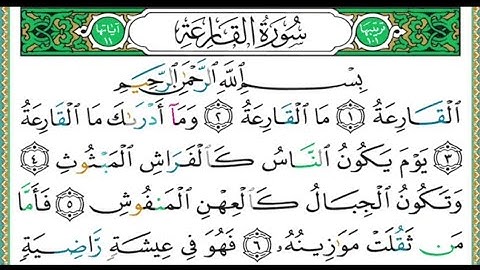 ترتيبها ١٠١ سُورَةُ القَارِعَةِ آياتها ١١
بِسْمِ اللَّهِ الرَّحْمَٰنِ الرَّحِيمِ
الْقَارِعَةُ ۝١ مَا الْقَارِعَةُ ۝٢ وَمَآ أَدْرَىٰكَ مَا الْقَارِعَةُ
۝٣ يَوْمَ يَكُونُ النَّاسُ كَالْفَرَاشِ الْمَبْثُوثِ ۝٤
وَتَكُونُ الْجِبَالُ كَالْعِهْنِ الْمَنفُوشِ ۝٥ فَأَمَّا
مَن ثَقُلَتْ مَوَٰزِينُهُۥ ۝٦ فَهُوَ فِي عِيشَةٍ رَّاضِيَةٍ